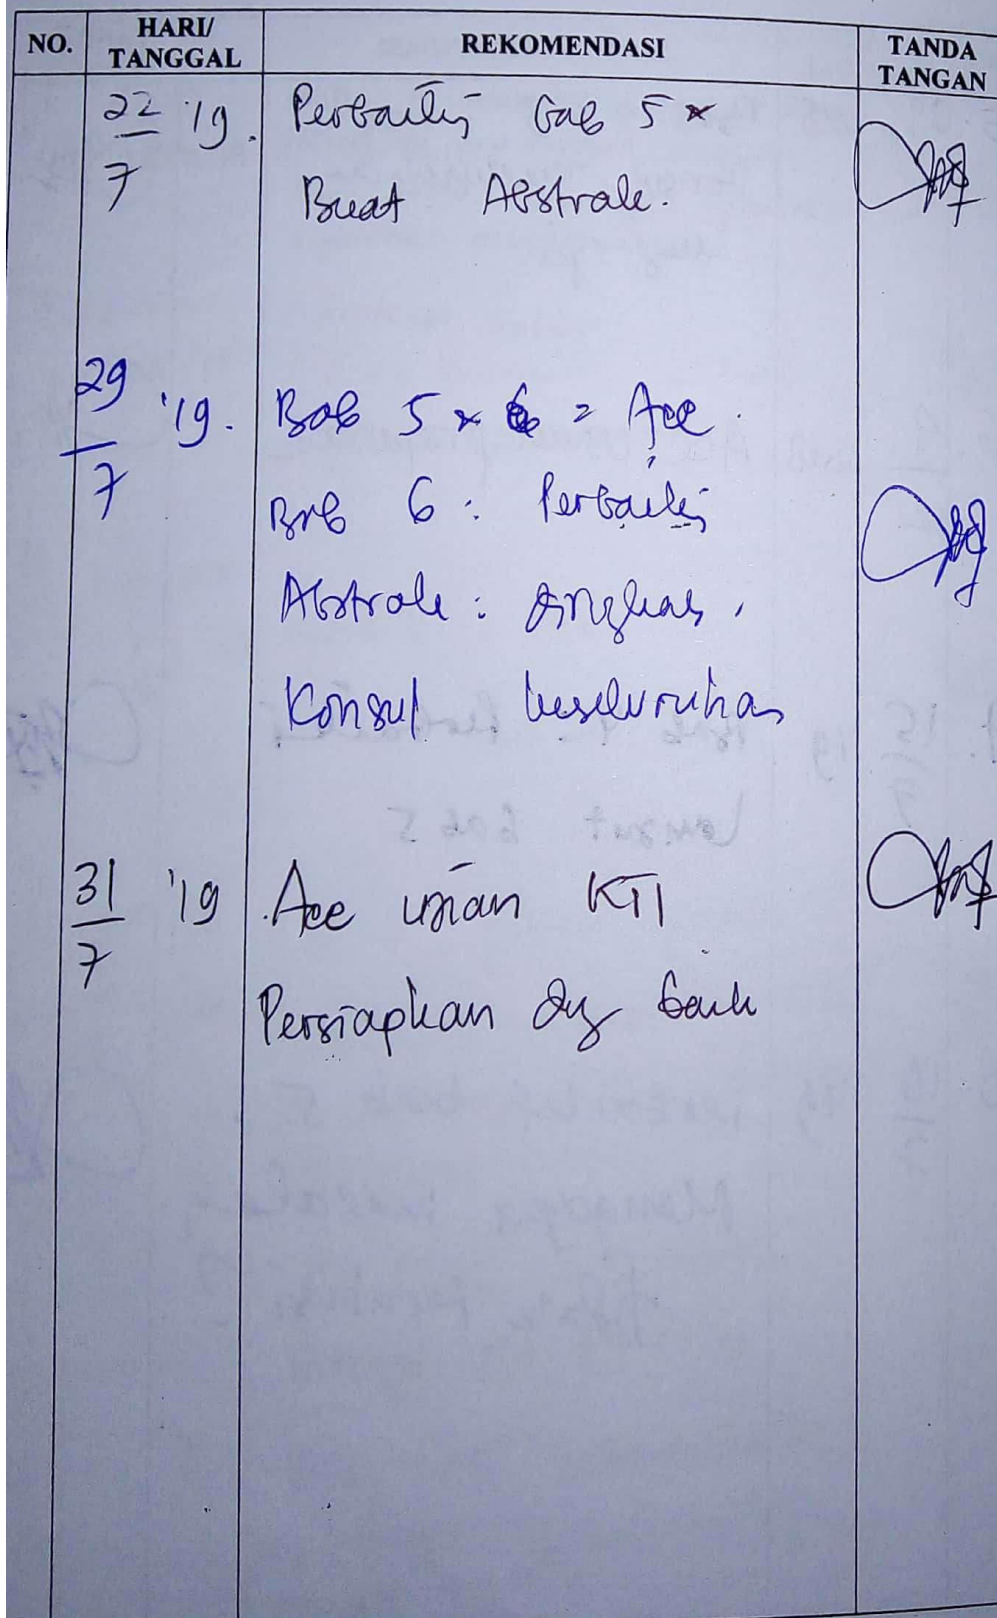 NO. HARI/ TANGGAL REKOMENDASI TANDA TANGAN
22/7 '19. Perbaiki bab 5 &
Buat Abstrak.
29/7 '19. Bab 5 = Acc.
Bab 6 : Perbaiki
Abstrak : ringkas,
Konsul keseluruhan
31/7 '19 Acc ujian KTI
Persiapkan dg baik